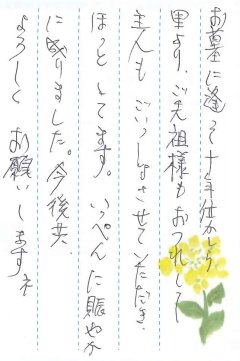 お墓に逢って十年位かしら
里より、ご先祖様もおつれして
主人も ごいっしょさせていただき、
ほっと してます。 いっぺんに賑やか
に成りました。今後共
よろしく お願いしますネ